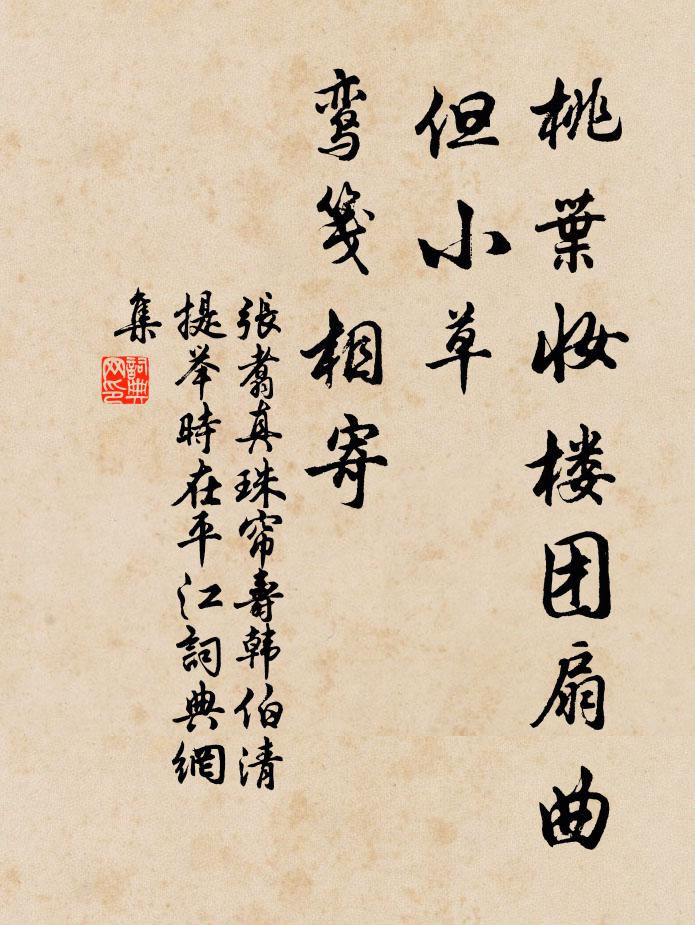 桃葉妆楼团扇曲
但小草
鸾笺相寄
張翥真珠帘壽韩伯清
提举時在平江詞典網
集
詞典
网印